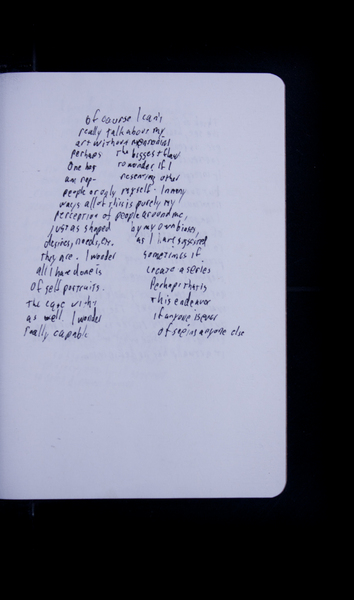 Of course I can't
really talk about my
art without
perhaps the biggest flaw
One has to wonder if I
am rep- resenting other
people or only myself. In many
ways all of this is purely my
perception of people around me,
just as shaped by my own biases,
desires, needs, etc. as I
they are. I wonder sometimes if
all I have done is create a series
of self portraits. Perhaps that is
the case with this endeavor
as well. I wonder if anyone is ever
really capable of seeing anyone else